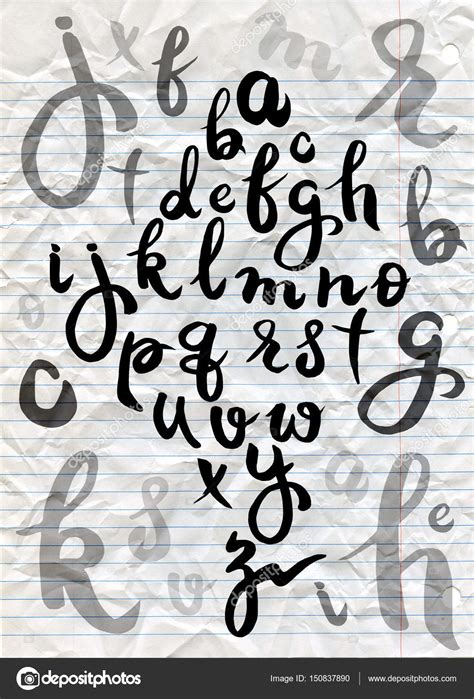 a
b c
d e f g h
i j k l m n o
p q r s t
u v w
x y
z
j x f m r
t b
c g
k s v a e h i
depositphotos
Image ID: 150837890 www.depositphotos.com